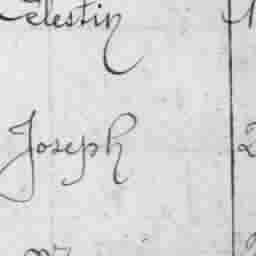 Celestin
Joseph 2